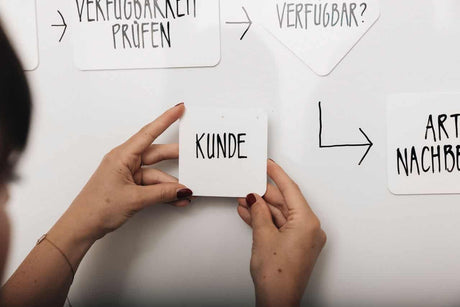 VERFÜGBARKEIT
PRÜFEN
VERFÜGBAR?
KUNDE
ART